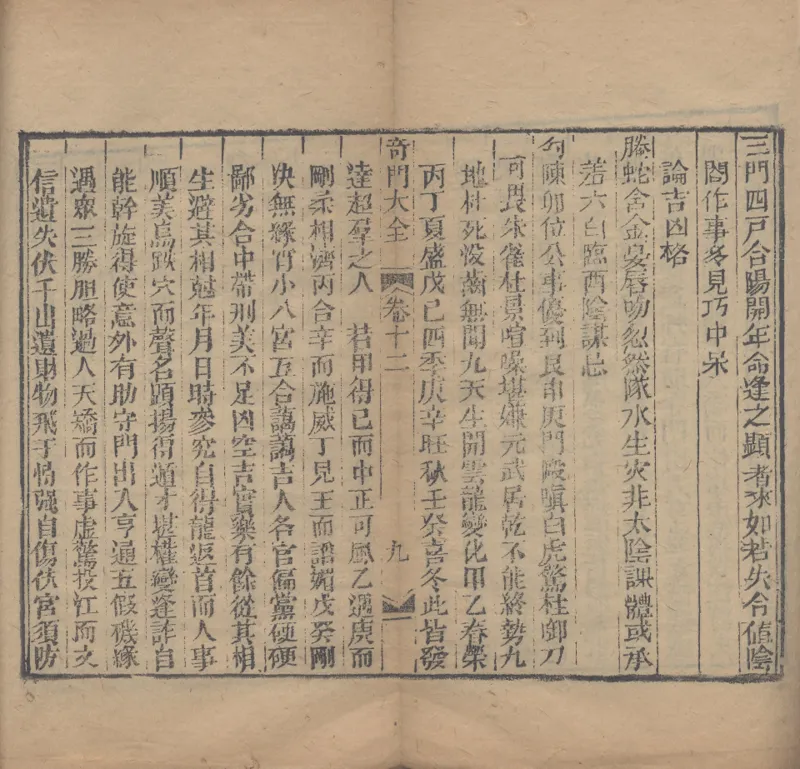 三門四戸合陽開年命逢之顯者來如若失合値陰
閣作事多見巧中呆
論吉凶格
螣蛇含金憂唇吻忽然隊水生灾非太陰課體或承
若六白臨酉陰謀忌
勾陳卯位公事優到艮串庚門毆嗔白虎驚杜卸刀
可畏朱雀杜景喧噪堪嫌元武居乾不能終勢九
地杜死没齒無聞九天生開雲龍變化甲乙春榮
丙丁夏盛戊己四季庚辛旺秋壬癸喜冬此皆發
奇門大全 卷十二 九
達超羣之人 若甲得已而中正可風乙遇庚而
剛柔相濟丙合辛而施威丁見壬而諂媚戊癸剛
決無緣宵小八宮五合謁謁吉人各官偏黨硬硬
鄙劣合中帶刑美不足凶空吉實藥有餘從其相
生避其相尅年月日時參究自得龍返首而人事
順美鳥跌穴而聲名顕揚得遁才堪權變逢詐自
能幹旋得使意外有助守門出入亨通五假磯緣
遇衆三勝胆略過人天矯而作事虚驚投江而文
信遺失伏干山遺財物飛于情强自傷伏宮須防